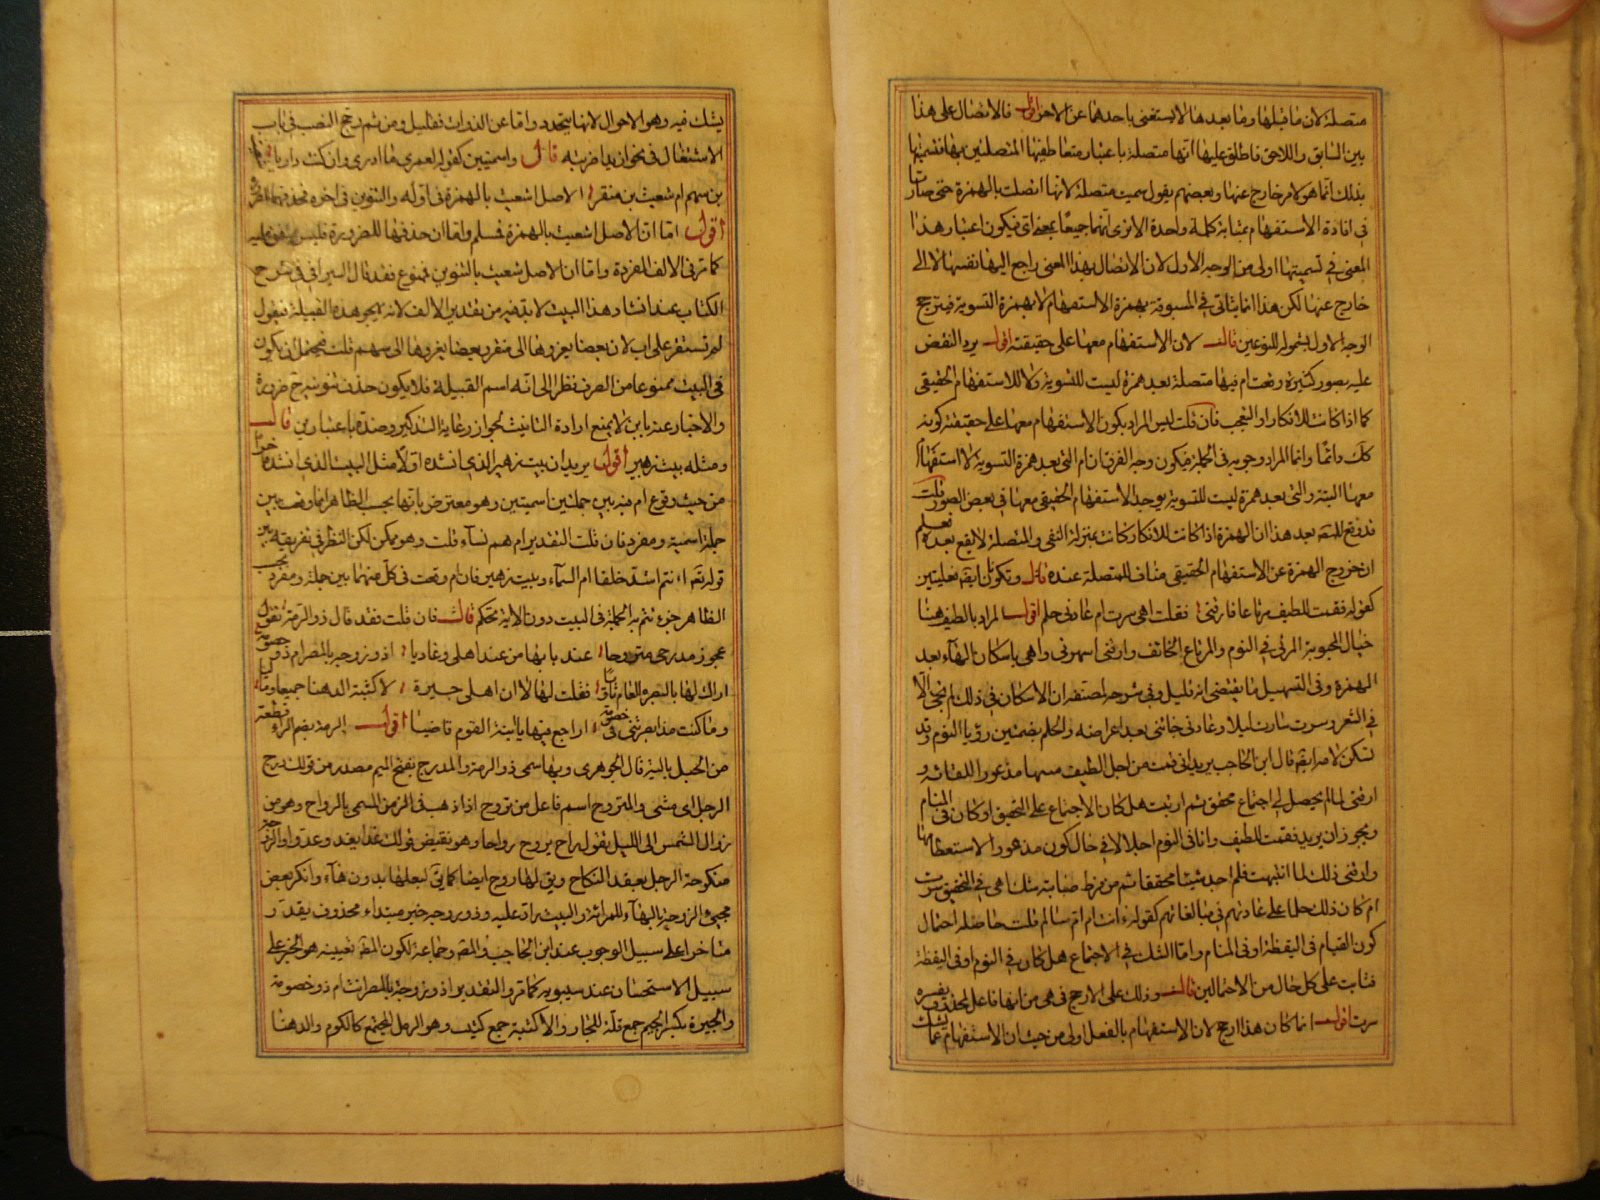 متصلة لان ما قبلها وما بعدها لا يستغنى باحدهما عن الاخر اقول فالاتصال على هذا
بين السابق واللاحق فاطلق عليها انها متصلة باعتبار متعاطفيها المتصلين بها فتسميتها
بذلك انما هو لامر خارج عنها وبعضهم يقول سميت متصلة لانها اتصلت بالهمزة حتى صارتا
في افادة الاستفهام بمثابة كلمة واحدة الا ترى انهما جميعا بمعنى اي فيكون اعتبار هذا
المعنى في تسميتها اولى من الوجه الاول لان الاتصال بهذا المعنى راجع اليها نفسها لا الى
خارج عنها لكن هذا انما يتاتى في المسبوقة بهمزة الاستفهام لا بهمزة التسوية فيترجح
الوجه الاول لشموله للنوعين قال لان الاستفهام معها على حقيقته اقول يرد النقض
عليه بصور كثيرة وقعت ام فيها متصلة بعد همزة ليست للتسوية ولا للاستفهام الحقيقي
كما اذا كانت للانكار او التعجب فان قلت ليس المراد بكون الاستفهام معها على حقيقته كونه
كذلك دائما وانما المراد وجوبه في الجملة فيكون وجه الفرق ان ام التي بعد همزة التسوية لا استفهام
معها البتة والتي بعد همزة ليست للتسوية يوجد الاستفهام الحقيقي معها في بعض الصور قلت
قد وقع للمصنف بعد هذا ان الهمزة اذا كانت للانكار كانت بمنزلة النفي والمتصلة لا تقع بعده فعلم
ان خروج الهمزة عن الاستفهام الحقيقي مناف للمتصلة عنده قال وتكون ايضا فعليتين
كقوله فقمت للطيف مرتاعا فارقني فقلت اهي سرت ام عادني حلم اقول المراد بالطيف هنا
خيال المحبوبة المرئي في النوم والمرتاع الخائف وارقني اسهرني واهي باسكان الهاء بعد
الهمزة وفي التسهيل ما يقتضي انه قليل وفي شرحه لمصنفه ان الاسكان في ذلك لم يجئ الا
في الشعر وسرت سارت ليلا وعادني جاءني بعد اعراضه والحلم بضمتين رؤيا النوم وقد
تسكن لامه ايضا قال ابن الحاجب يريد اني قمت من اجل الطيف منتبها مذعورا للقائه و
ارقني لما لم يحصل لي اجتماع محقق ثم ارتبت هل كان الاجتماع على التحقيق او كان في المنام
ويجوز ان يريد فقمت للطيف وانا في النوم اجلالا في حال كون مذعورا لاستعظامها
وارقني ذلك لما انتبهت فلم اجد شيئا محققا ثم من فرط صبابته شك اهي في التحقيق سرت
ام كان ذلك حلما على عادتهم في مبالغاتهم كقوله ءانت ام ام سالم قلت حاصله احتمال
كون القيام في اليقظة او في المنام واما الشك في الاجتماع هل كان في النوم او في اليقظة
فثابت على كل حال من الاحتمالين قال وذلك على الارجح في هي من انها فاعل لمحذوف يفسره
سرت اقول انما كان هذا ارجح لان الاستفهام بالفعل اولى من حيث ان الاستفهام عما يشك
يشك فيه وهو الاحوال لانها تتجدد واما عن الذوات فقليل ومن ثم رجح النصب في باب
الاشتغال في نحو ازيدا ضربته قال واسميتين كقوله لعمري ما ادري وان كنت داريا شعيث
بن سهم ام شعيث بن منقر الاصل اشعيث بالهمزة في اوله والتنوين في اخره فحذفهما للضرورة
اقول اما ان الاصل اشعيث بالهمزة فمسلم واما ان حذفها للضرورة فليس متفق عليه
كما مر في الالف المفردة واما ان الاصل شعيث بالتنوين فممنوع فقد قال السيرافي في شرح
الكتاب بعد انشاد هذا البيت لا بد فيه من تقدير الالف لانه يهجو هذه القبيلة فيقول
لم تستقر على اب لان بعضا يعزوها الى منقر وبعضا يعزوها الى سهم قلت فيحتمل ان يكون
في البيت ممنوعا من الصرف نظرا الى انه اسم القبيلة فلا يكون حذف تنوينه ضرورة
والاخبار عنه بابن لا يمنع ارادة التانيث لجواز رعاية التذكير وضده باعتبارين قال
ومثله بيت زهير اقول يريد ان بيت زهير الذي انشده اولا مثل البيت الذي انشده اخرا
من حيث وقوع ام فيه بين جملتين اسميتين وهو معترض بانها بحسب الظاهر انما وقعت بين
جملة اسمية ومفرد فان قلت التقدير ام هم نساء قلت وهو ممكن لكن النظر في تفرقته بين
قوله تعالى ءانتم اشد خلقا ام السماء وبيت زهير فان ام وقعت في كل منهما بين جملة ومفرد بحسب
الظاهر جزء تتم به الجملة في البيت دون الاية تحكم قال فان قلت فقد قال ذو الرمة تقول
عجوز مدرجي متروحا عند بابها من عند اهلي وغاديا اذو زوجة بالمصر ام ذو خصومة
اراك لها بالبصرة العام ثاويا فقلت لها لا ان اهلي جيرة لاكثبة الدهنا جميعا وماليا
وما كنت مذ ابصرتني في خصومة اراجع فيها يا ابنة القوم قاضيا اقول الرمة بضم الراء قطعة
من الحبل بالية قال الجوهري وبها سمي ذو الرمة والمدرج بفتح الميم مصدر من قولك درج
الرجل اي مشى والمتروح اسم فاعل من تروح اذا ذهب في الزمن المسمى بالرواح وهو من
زوال الشمس الى الليل يقول راح يروح رواحا وهو نقيض قولك غدا يغدو غدوا والزوجة
منكوحة الرجل بعقد النكاح ويقال لها زوج ايضا كما يقال لبعلها بدون هاء وانكر بعض
مجيء الزوجة بالهاء للمراة والبيت يرد عليه وذو زوجة خبر مبتداء محذوف يقدر
متاخرا على سبيل الوجوب عند ابن الحاجب والمصنف وجماعة لكون المقصود تعيينه هو الخبر على
سبيل الاستحسان عند سيبويه كما مر والتقدير اذو زوجة بالمصر انت ام ذو خصومة
والجيرة بكسر الجيم جمع قلة للجار والاكثبة جمع كثيب وهو الرمل المجتمع كالكوم والدهنا